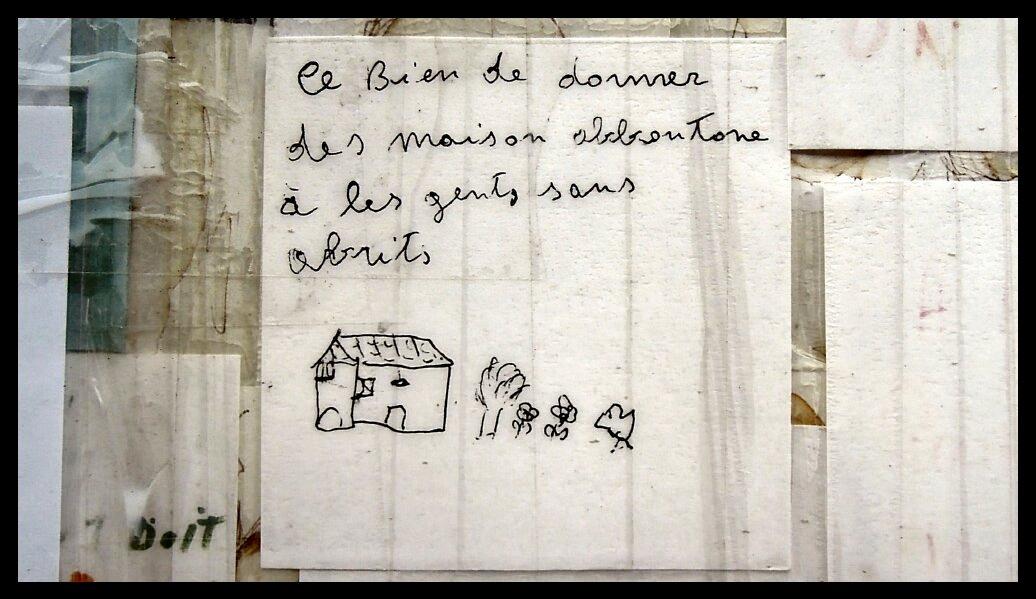 Ce Bien de donner
des maison abbontone
à les gents sans
abrits
DoiT